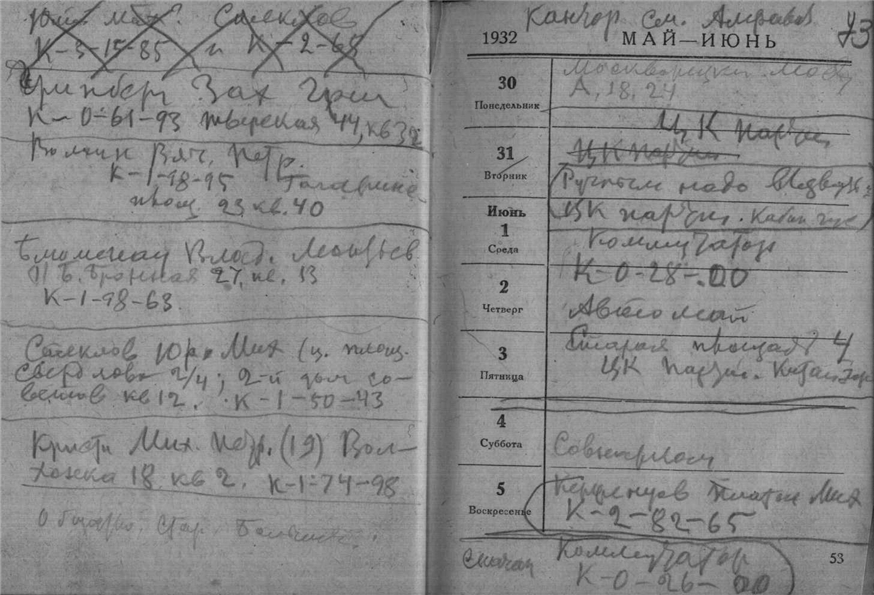 Юр. Мих. Стеклов
К-3-15-85 и К-2-65
Гринберг Зах Григ
К-0-61-93 Тверская 44, кв 32
Волгин Вяч. Петр.
К-1-98-95
площ. 23 кв. 40
Влад.
Б. Бронная 27, кв. 13
К-1-98-63
Стеклов Юр. Мих (ц. площ.
Свердлова 2/4; 2-й дом со-
ветов кв 12. К-1-50-43
Кристи Мих. Петр. (19) Вол-
хонка 18 кв 2. К-1-74-98
Стар.
см. 73
1932 МАЙ—ИЮНЬ
30 Понедельник
А, 18, 24
ЦК партии
31 Вторник
ЦК партии
надо
Июнь
1 Среда
ЦК партии.
Коммутатор
К-0-28-00
2 Четверг
Автомат
3 Пятница
Старая площадь 4
ЦК партии. Китай-гор
4 Суббота
Совнарком
5 Воскресенье
Керженцев Платон Мих
К-2-82-65
Коммутатор
К-0-26-00
53